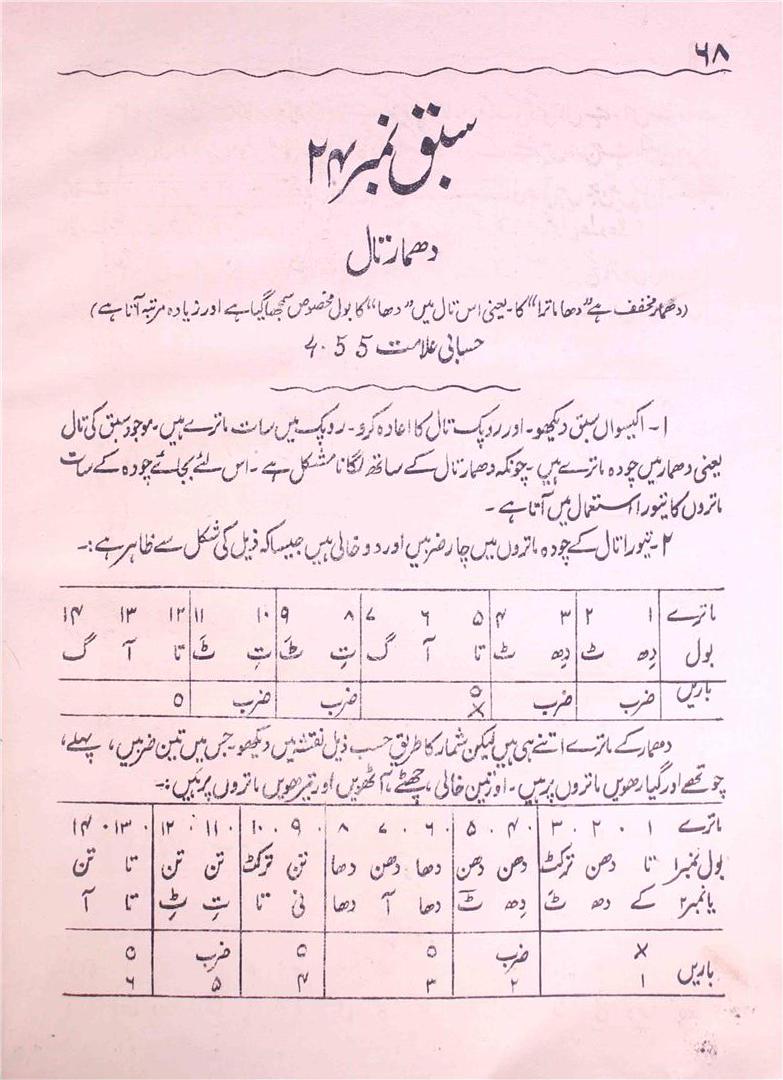 ۶۸
سبق نمبر ۲۴
دھمار تال
(دھمار مخفف ہے ”دھا ماترا“ کا۔ یعنی اس تال میں ”دھا“ کا بول مخصوص سمجھا گیا ہے اور زیادہ مرتبہ آتا ہے)
حسابی علامت 5 5 ۰ ۴
۱۔ اکیسواں سبق دیکھو۔ اور روپک تال کا اعادہ کرو۔ روپک میں سات ماترے ہیں۔ موجود سبق کی تال
یعنی دھمار میں چودہ ماترے ہیں۔ چونکہ دھمار تال کے ساتھ لگانا مشکل ہے۔ اس لئے بجائے چودہ کے سات
ماتروں کا تیورا استعمال میں آتا ہے۔
۲۔ تیورا تال کے چودہ ماتروں میں چار ضربیں اور دو خالی ہیں جیسا کہ ذیل کی شکل سے ظاہر ہے:۔
ماترے ۱ ۲ ۳ ۴ ۵ ۶ ۷ ۸ ۹ ۱۰ ۱۱ ۱۲ ۱۳ ۱۴
بول دِھ ٹ دِھ ٹ تا آ گ تِ ٹَ تِ ٹَ تا آ گ
باریں ضرب ضرب ۵ × ضرب ضرب ۵
دھمار کے ماترے اتنے ہی ہیں لیکن شمار کا طریق حسب ذیل نقشہ میں دیکھو۔ جس میں تین ضربیں، پہلے،
چوتھے اور گیارھویں ماتروں پر ہیں۔ اور تین خالی، چھٹے، آٹھویں اور تیرھویں ماتروں پر ہیں:۔
ماترے ۱ ۰ ۲ ۰ ۳ ۰ ۴ ۰ ۵ ۰ ۶ ۰ ۷ ۰ ۸ ۰ ۹ ۰ ۱۰ ۰ ۱۱ ۰ ۱۲ ۰ ۱۳ ۰ ۱۴
بول نمبر۱ تا دھن ترکٹ دھن دھن دھا دھن دھا تن ترکٹ تن تن تا تن
یا نمبر۲ کے دھ ٹَ دِھ ٹَ دھا آ دھا نی تا تِ ٹِ تا آ
باریں × ضرب ۵ ۵ ضرب ۵
۱ ۲ ۳ ۴ ۵ ۶